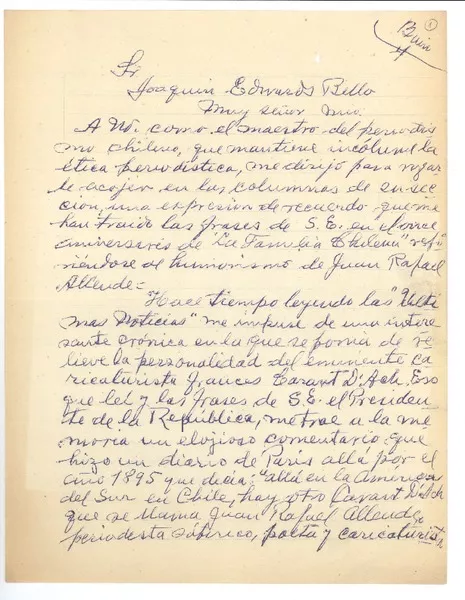 1
Buin
Sr
Joaquin Edwards Bello
Muy señor mio:
A Ud. como el maestro del periodis
mo chileno, que mantiene incólume la
ética periodística, me dirijo para rogar
le acojer en las columnas de su sec
cion, una expresion de recuerdo que me
han traido las frases de S.E. en el
aniversario de "La Familia Chilena" refi
riéndose al humorismo de Juan Rafael
Allende=
"Hace tiempo leyendo las "Ulti
mas Noticias" me impuse de una intere
sante crónica en la que se ponia de re
lieve la personalidad del eminente ca
ricaturista frances Carant D'Ach. Eso
que leí y las frases de S.E. el Presiden
te de la República, me trae a la me
moria un elojioso comentario que
hizo un diario de Paris allá por el
año 1895 que decia: "allá en la America
del Sur en Chile, hay otro Carant D'Ach
que se llama Juan Rafael Allende,
periodista satirico, poeta y caricaturista